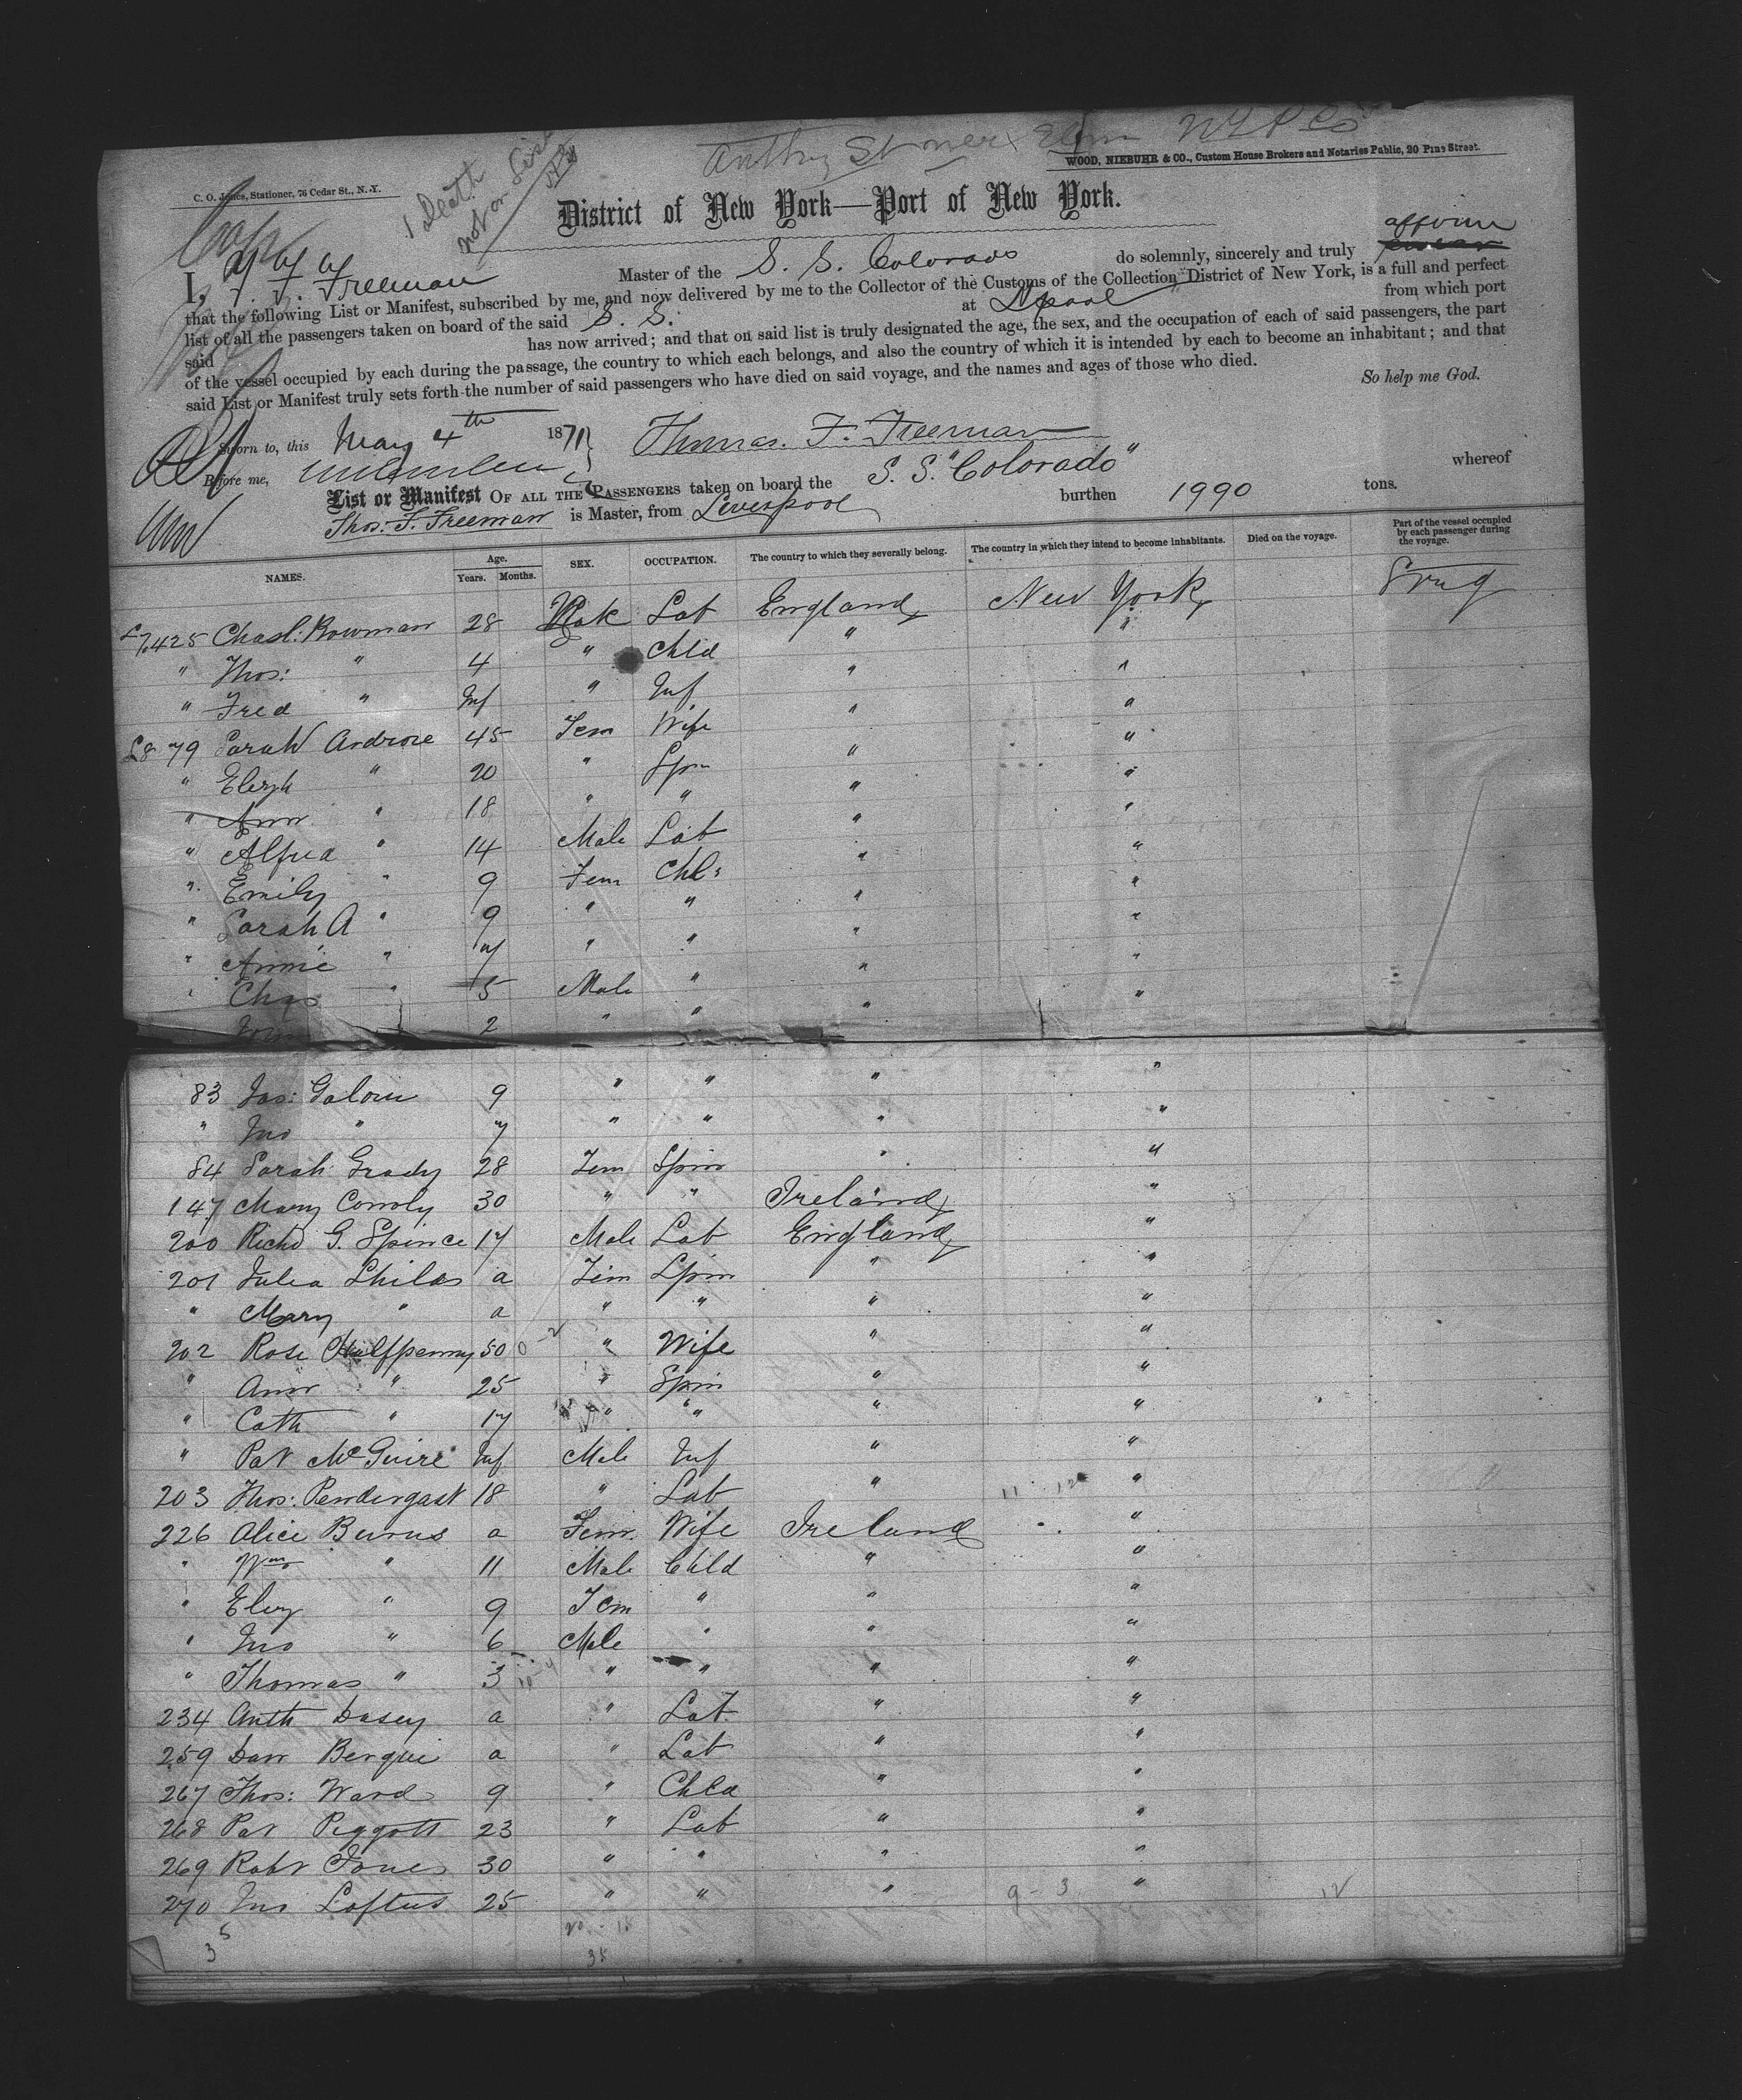 1 Death not on List
WOOD, NIEBUHR & CO., Custom House Brokers and Notaries Public, 20 Pine Street.
C. O. Jones, Stationer, 76 Cedar St., N.-Y.
District of New York—Port of New York.
I, T. F. Freeman Master of the S. S. Colorado do solemnly, sincerely and truly affirm
that the following List or Manifest, subscribed by me, and now delivered by me to the Collector of the Customs of the Collection District of New York, is a full and perfect
list of all the passengers taken on board of the said S. S. at Lpool from which port
said has now arrived; and that on said list is truly designated the age, the sex, and the occupation of each of said passengers, the part
of the vessel occupied by each during the passage, the country to which each belongs, and also the country of which it is intended by each to become an inhabitant; and that
said List or Manifest truly sets forth the number of said passengers who have died on said voyage, and the names and ages of those who died.
So help me God.
Sworn to, this May 4th 1871 } Thomas. F. Freeman
Before me,
List or Manifest OF ALL THE PASSENGERS taken on board the S. S. "Colorado" whereof
Thos. F. Freeman is Master, from Liverpool burthen 1990 tons.
NAMES. Age. Years. Months. SEX. OCCUPATION. The country to which they severally belong. The country in which they intend to become inhabitants. Died on the voyage. Part of the vessel occupied by each passenger during the voyage.
425 Chas: Bowman 28 Male Lab England New York
" Thos: " 4 " Chld " "
" Fred " Inf " Inf " "
79 Sarah 45 Fem Wife " "
" Elizh " 20 " Spn " "
" Ann " 18 " " " "
" Alfred " 14 Male Lab " "
" Emily " 9 Fem Chld " "
" Sarah A " 9 " " " "
" Annie " 7 " " " "
" Chas " 5 Male " " "
2 " " " "
83 Jas: 9 " " " "
" Jno " 7 " " " "
84 Sarah Grady 28 Fem Spin " "
147 Mary Conoly 30 " " Ireland "
200 Richd G. Spince 17 Male Lab England "
201 Julia Shilas a Fem Spin " "
" Mary " a " " " "
202 Rose Halfpenny 50 " Wife " "
" Ann " 25 " Spin " "
" Cath " 17 " " " "
" Pat McGuire Inf Male Inf " "
203 Thos: Pendergast 18 " Lab " "
226 Alice Burns a Fem. Wife Ireland "
" Wm " 11 Male Child " "
" Eliz " 9 Fem " " "
" Jno " 6 Male " " "
" Thomas " 3 " " " "
234 Anth Dasey a " Lab. " "
259 Dan Bergui a " Lab " "
267 Thos: Ward 9 " Chld " "
268 Pat Piggott 23 " Lab " "
269 Robt Jones 30 " " " "
270 Jno Loftus 25 " " " "
35